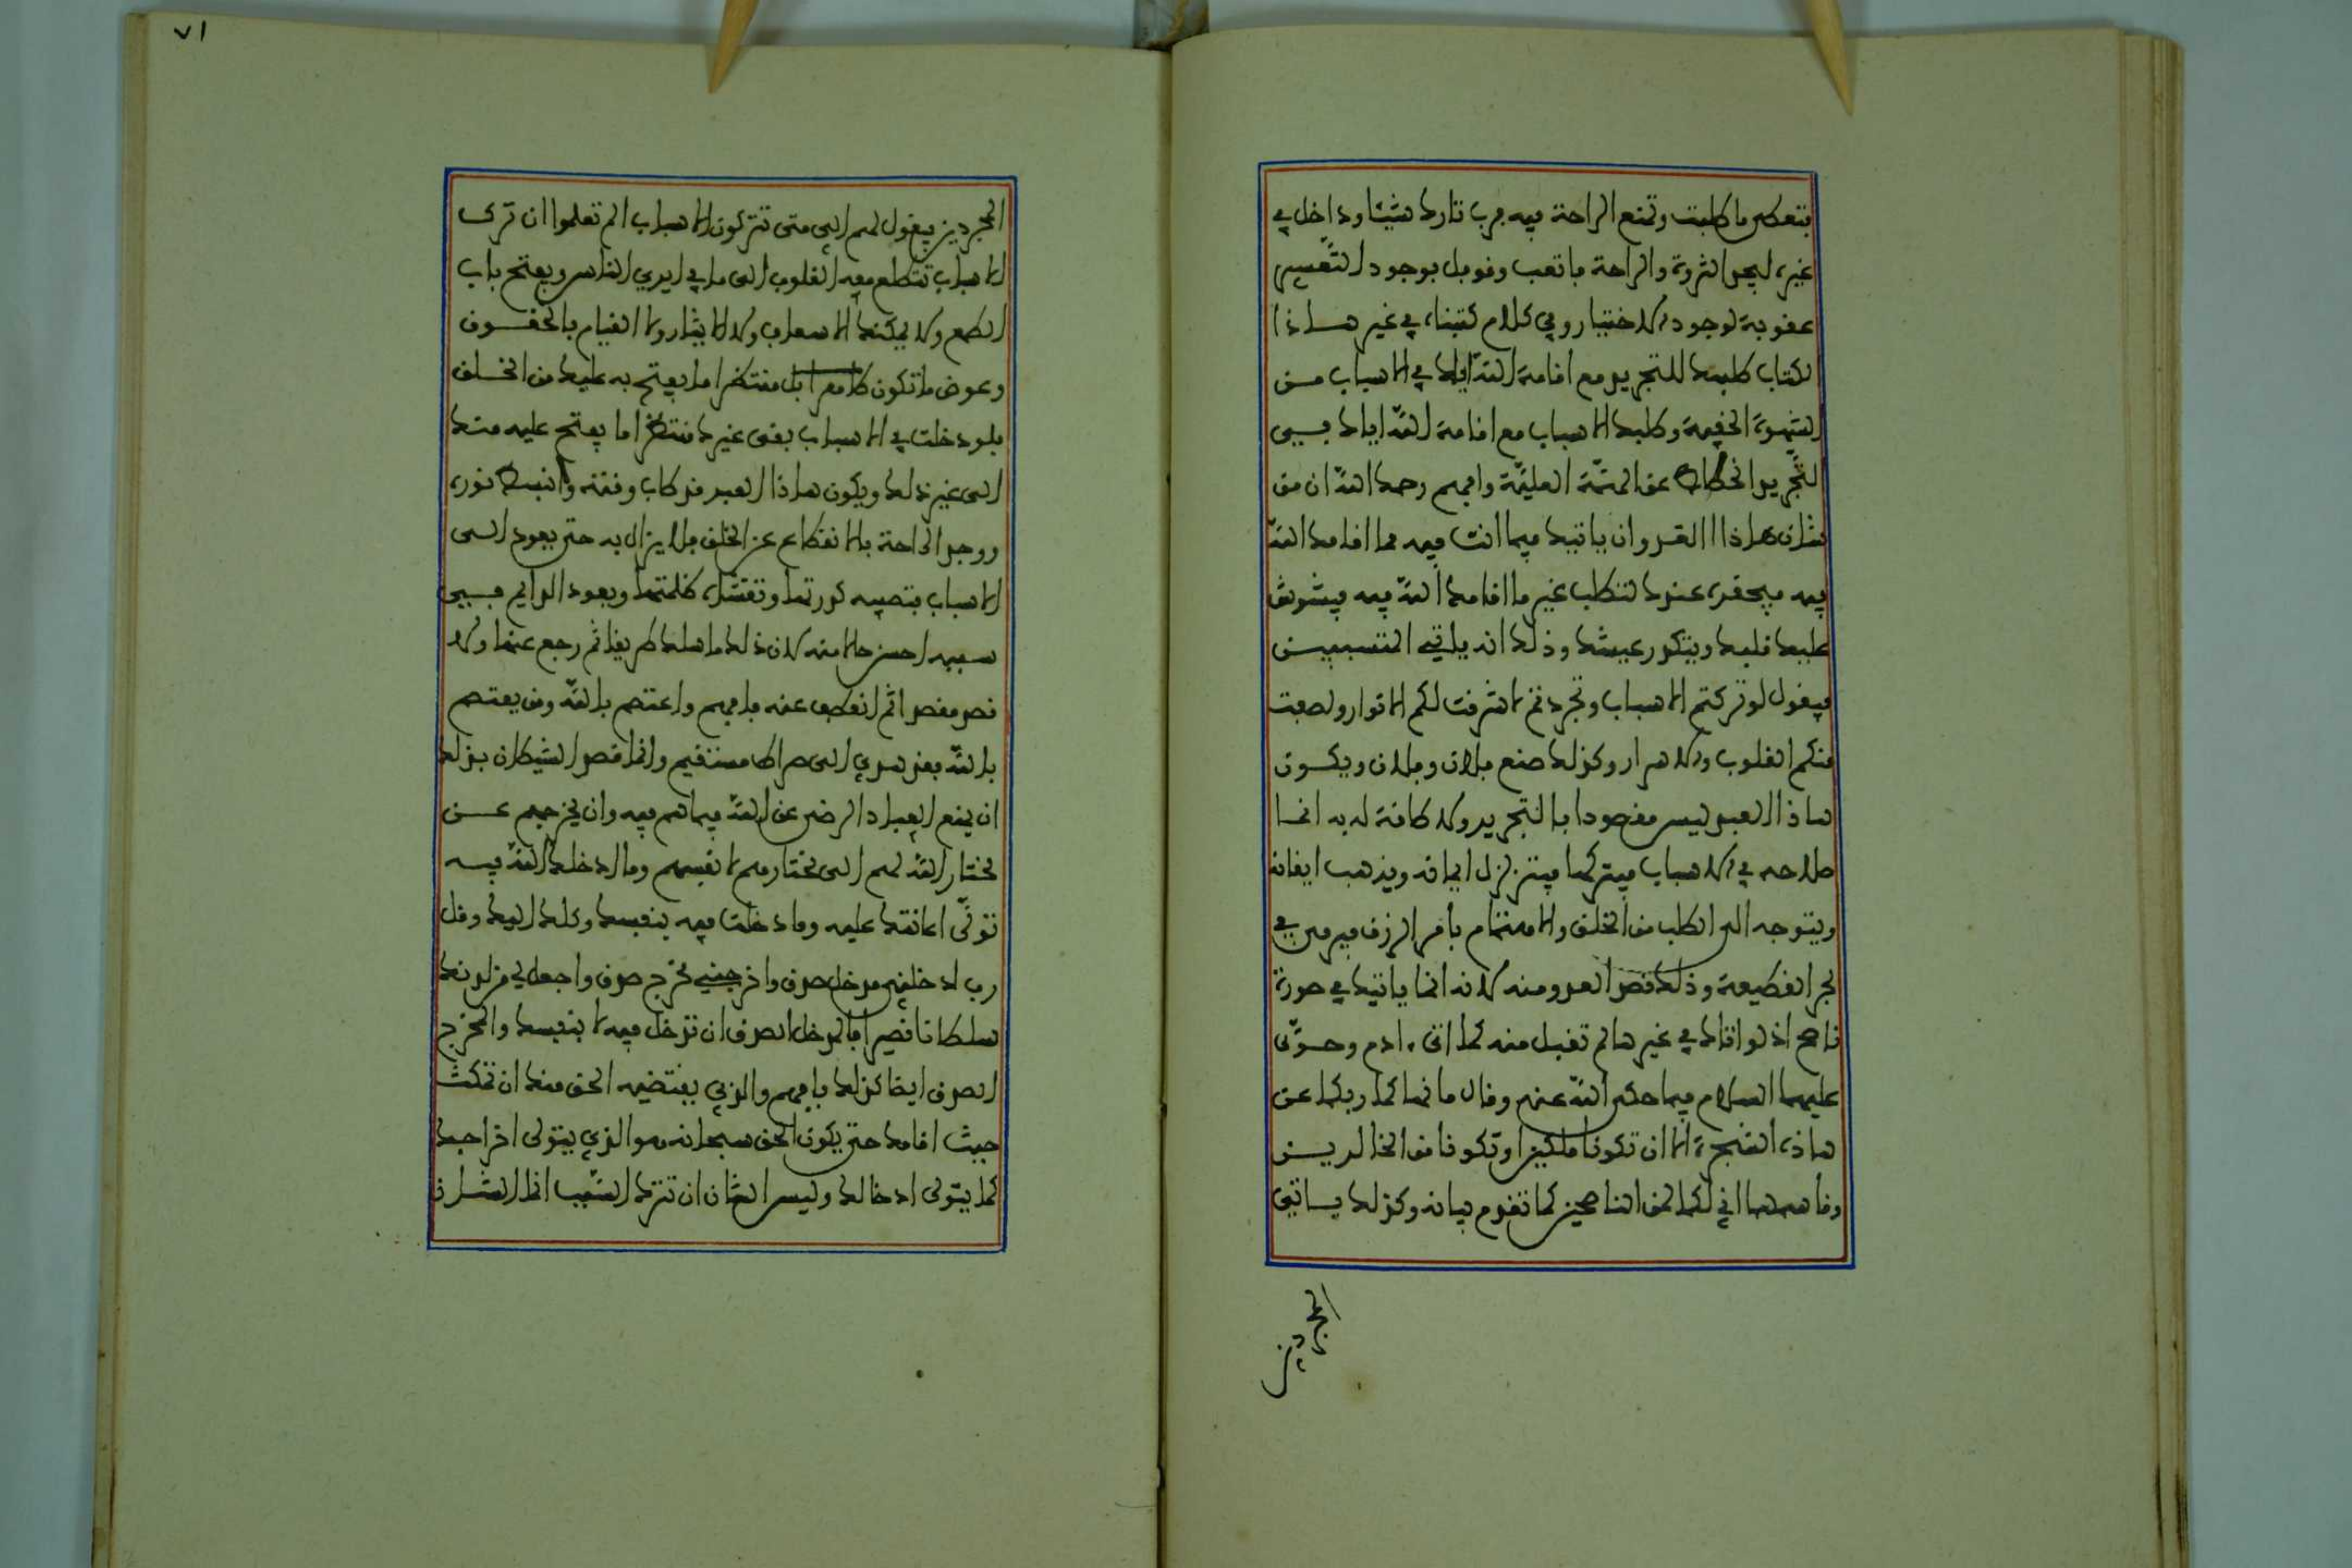 فتعطى ما طلبت وتمنع الراحة فيه فرب تارك شيئا وداخل في
غيره ليجد الثروة والراحة فاتعب وقوبل بوجود التعسير
عقوبة لوجود الاختيار وفي كلام كتبناه في غير هاذا
الكتاب طلبك للتجريد مع اقامة الله اياك في الاسباب من
الشهوة الخفية وطلبك الاسباب مع اقامة الله اياك في
التجريد انحطاط عن الهمة العلية وافهم رحمك الله ان من
شان هاذا العدو ان ياتيك فيما انت فيه مما اقامك الله
فيه فيحقره عندك لتطلب غير ما اقامك الله فيه فيشوش
عليك قلبك ويتكدر عيشك وذلك انه ياتي المتسببين
فيقول لو تركتم الاسباب وتجردتم لاشرقت لكم الانوار ولصفت
منكم القلوب والاسرار وكذلك صنع فلان وفلان ويكون
هاذا العبد ليس مقصودا بالتجريد ولا طاقة له به انما
صلاحه في الاسباب فيتركها فيتزلزل ايمانه ويذهب ايقانه
ويتوجه الى الطلب من الخلق والاهتمام بامر الرزق فيرمى في
بحر القطيعة وذلك قصد العدو منه لانه انما ياتيك في صورة
ناصح اذ لو اتاك في غيرها لم تقبل منه كما اتى ءادم وحوى
عليهما السلام فيما حكى الله عنهم وقال ما نهاكما ربكما عن
هاذه الشجرة الا ان تكونا ملكين او تكونا من الخالدين
وقاسمهما اني لكما لمن الناصحين كما تقدم بيانه وكذلك ياتي
المجردين
٧١
المجردين فيقول لهم الى متى تتركون الاسباب الم تعلموا ان ترك
الاسباب تتطلع معه القلوب الى ما في ايدي الناس ويفتح باب
الطمع ولا يمكنك الاسعاف ولا الايثار ولا القيام بالحقوق
وعوض ما تكون منتظرا ما يفتح به عليك من الخلق
فلو دخلت في الاسباب بقى غيرك منتظرا ما يفتح عليه منك
الى غير ذلك ويكون هاذا العبد قد طاب وقته وانبسط نوره
ووجد الراحة بالانقطاع عن الخلق فلا يزال به حتى يعود الى
الاسباب فتصيبه كدورتها وتغشاه ظلمتها ويعود الدايم في
سببه احسن حالا منه لان ذلك ما سلك طريقا ثم رجع عنها ولا
قصد مقصدا ثم انعطف عنه فافهم واعتصم بالله ومن يعتصم
بالله فقد هدي الى صراط مستقيم وانما قصد الشيطان بذلك
ان يمنع العباد الرضى عن الله فيما هم فيه وان يخرجهم عن
مختار الله لهم الى مختارهم لانفسهم وما ادخلك الله فيه
تولى اعانتك عليه وما دخلت فيه بنفسك وكلك اليك وقل
رب ادخلني مدخل صدق واخرجني مخرج صدق واجعل لي من لدنك
سلطانا نصيرا فالمدخل الصدق ان تدخل فيه لا بنفسك والمخرج
الصدق ايضا كذلك فافهم والذي يقتضيه الحق منك ان تمكث
حيث اقامك حتى يكون الحق سبحانه هو الذي يتولى اخراجك
كما يتولى ادخالك وليس الشان ان تترك السبب انما الشان